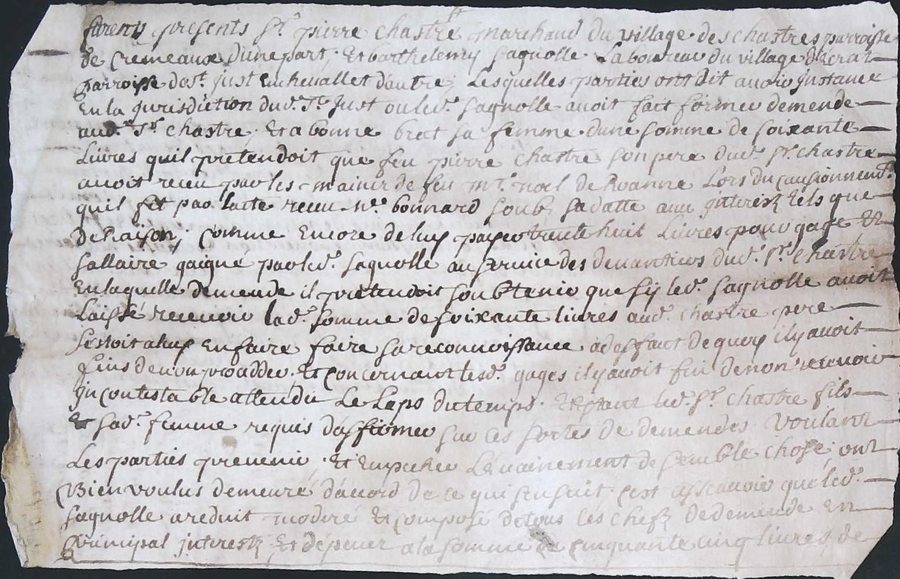 furent presents Sr. pierre chastre marchand du village des chastres parroisse
de Cremeaux dunepart, Et barthelemy sagnolle Laboureur du village
parroisse dest. Just Enchevallet dautre, Lesquelles parties ont dit avoir Instance
En la Jurisdiction dud. St. Just ou led. sagnolle avoit fait former demende
aud. Sr. chastre Et a bonne sa femme dune somme de soixante
Livres quil pretendoit que feu pierre chastre son pere dud. Sr. chastre
avoit receu par les mains de feu Mr. noel de Roanne Lors du
quil fit par lacte receu Me. bonnard soub sa datte aux Interestz tels que
de Raison, comme Encore de luy payer trente huit Livres pour gage Et
sallaire gaigné par led. sagnolle au service des devantiers dud. Sr. chastre
En laquelle demende il pretendoit soubtenir que sy led. sagnolle avoit
Laissé recevoir lad. somme de soixante livres aud. chastre pere
En faire faire sa reconnoissance a deffaut de quoy il y avoit
fins de Et concernant lesd. gages il y avoit fin de non recevoir
Incontestable attendu Le Laps du temps Et estant led. Sr. chastre fils
Et sad. femme requis daffirmer sur ces sortes de demendes voulant
Les parties prevenir Et Empecher de semble chose ont
Bien voulus demeuré dacord de ce qui sensuit cest asscavoir que led.
sagnolle a reduit modéré Et composé de tous les chefz de demende En
principal Interestz Et depens a la somme de cinquante cinq livres de